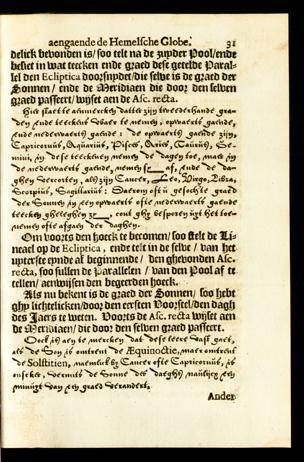 aengaende de Hemelsche Globe. 31
delick bevonden is/ soo telt na de zuyder Pool/ ende
besiet in wat teecken ende graed dese getelde Paral-
lel den Ecliptica doorsnydet/ die selve is de graed der
Sonnen/ ende de Meridiaen die door den selven
graed passeert/ wijset aen de Asc. recta.
Hier staet te aenmercken datter zijn tweederhande gra-
den ende teecken waer te nemen, opwaerts gaende,
ende nederwaerts gaende: de opwaerts gaende zijn,
Capricornus, Aquarius, Pisces, Aries, Taurus, Ge-
mini, in dese teeckenen nemen de dagen toe, maer in
de nederwaerts gaende, nemen se af, ende de da-
ghen vercorten, als zijn Cancer, Leo, Virgo, Libra,
Scorpius, Sagittarius: Daerom oft u gesochte graed
der Sonnen in een opwaerts ofte nederwaerts gaende
teecken gheleghen zy, cont ghy besporen uyt het toe-
nemen ofte afgaen der daghen.
Om voorts den hoeck te becomen/ soo stelt de Li-
neael op de Ecliptica, ende telt in de selve/ van het
uyterste eynde af beginnende/ den ghevonden Asc.
recta, soo sullen de Parallelen/ van den Pool af te
tellen/ aenwijsen den begeerden hoeck.
Als nu bekent is de graed der Sonnen/ soo hebt
ghy lichtelicken/ door den eersten Voorstel/ den dagh
des Jaers te weten. Voorts de Asc. recta wijset aen
de Meridiaen/ die door den selven graed passeert.
Oock is aen te mercken dat dese leere vast gaet,
als de Son is omtrent de Æquinoctie, maer omtrent
de Solstitien, namelick by Cancer ofte Capricornus, is
onseker, vermits de Sonne des daeghs naulijcx een
minuyt van een graed verandert.
Ander